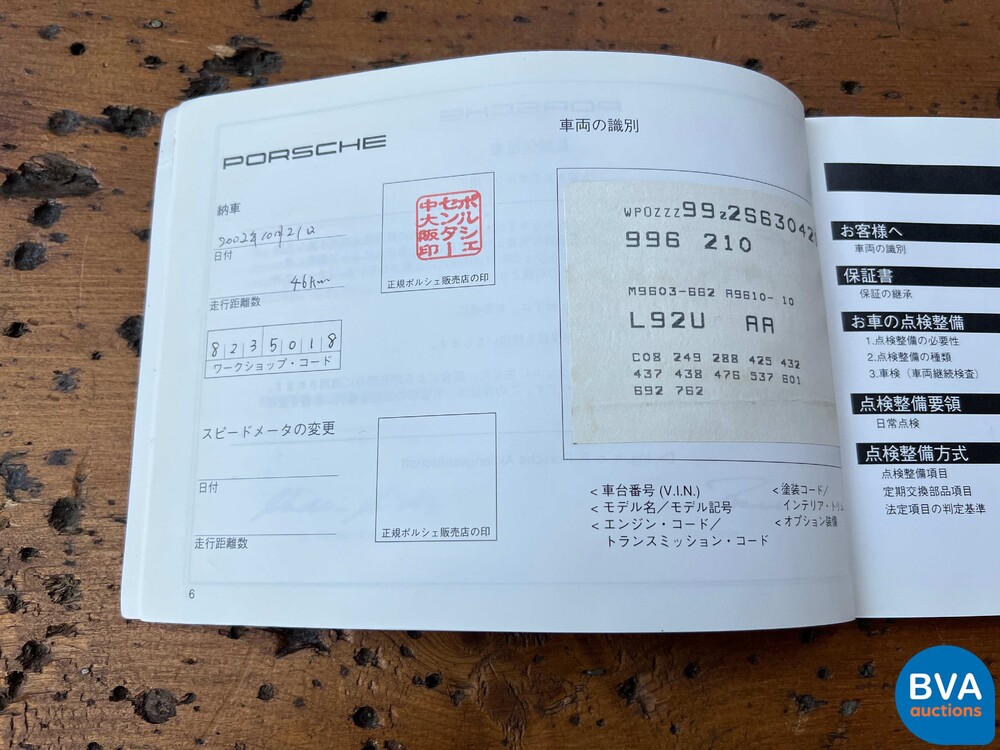 PORSCHE
納車
2002年10月21日
日付
46km
走行距離数
8 2 3 5 0 1 8
ワークショップ・コード
ポルシェ
センター
中大阪印
正規ポルシェ販売店の印
スピードメータの変更
日付
走行距離数
正規ポルシェ販売店の印
6
車両の識別
WP0ZZZ99Z2S63042
996 210
M9603-662 A9610- 10
L92U AA
C08 249 288 425 432
437 438 476 537 601
692 762
< 車台番号 (V.I.N.)
< モデル名／モデル記号
< エンジン・コード／
トランスミッション・コード
< 塗装コード/
インテリア・トリム
< オプション装備
お客様へ
車両の識別
保証書
保証の継承
お車の点検整備
1.点検整備の必要性
2.点検整備の種類
3.車検（車両継続検査）
点検整備要領
日常点検
点検整備方式
点検整備項目
定期交換部品項目
法定項目の判定基準
BVA
auctions